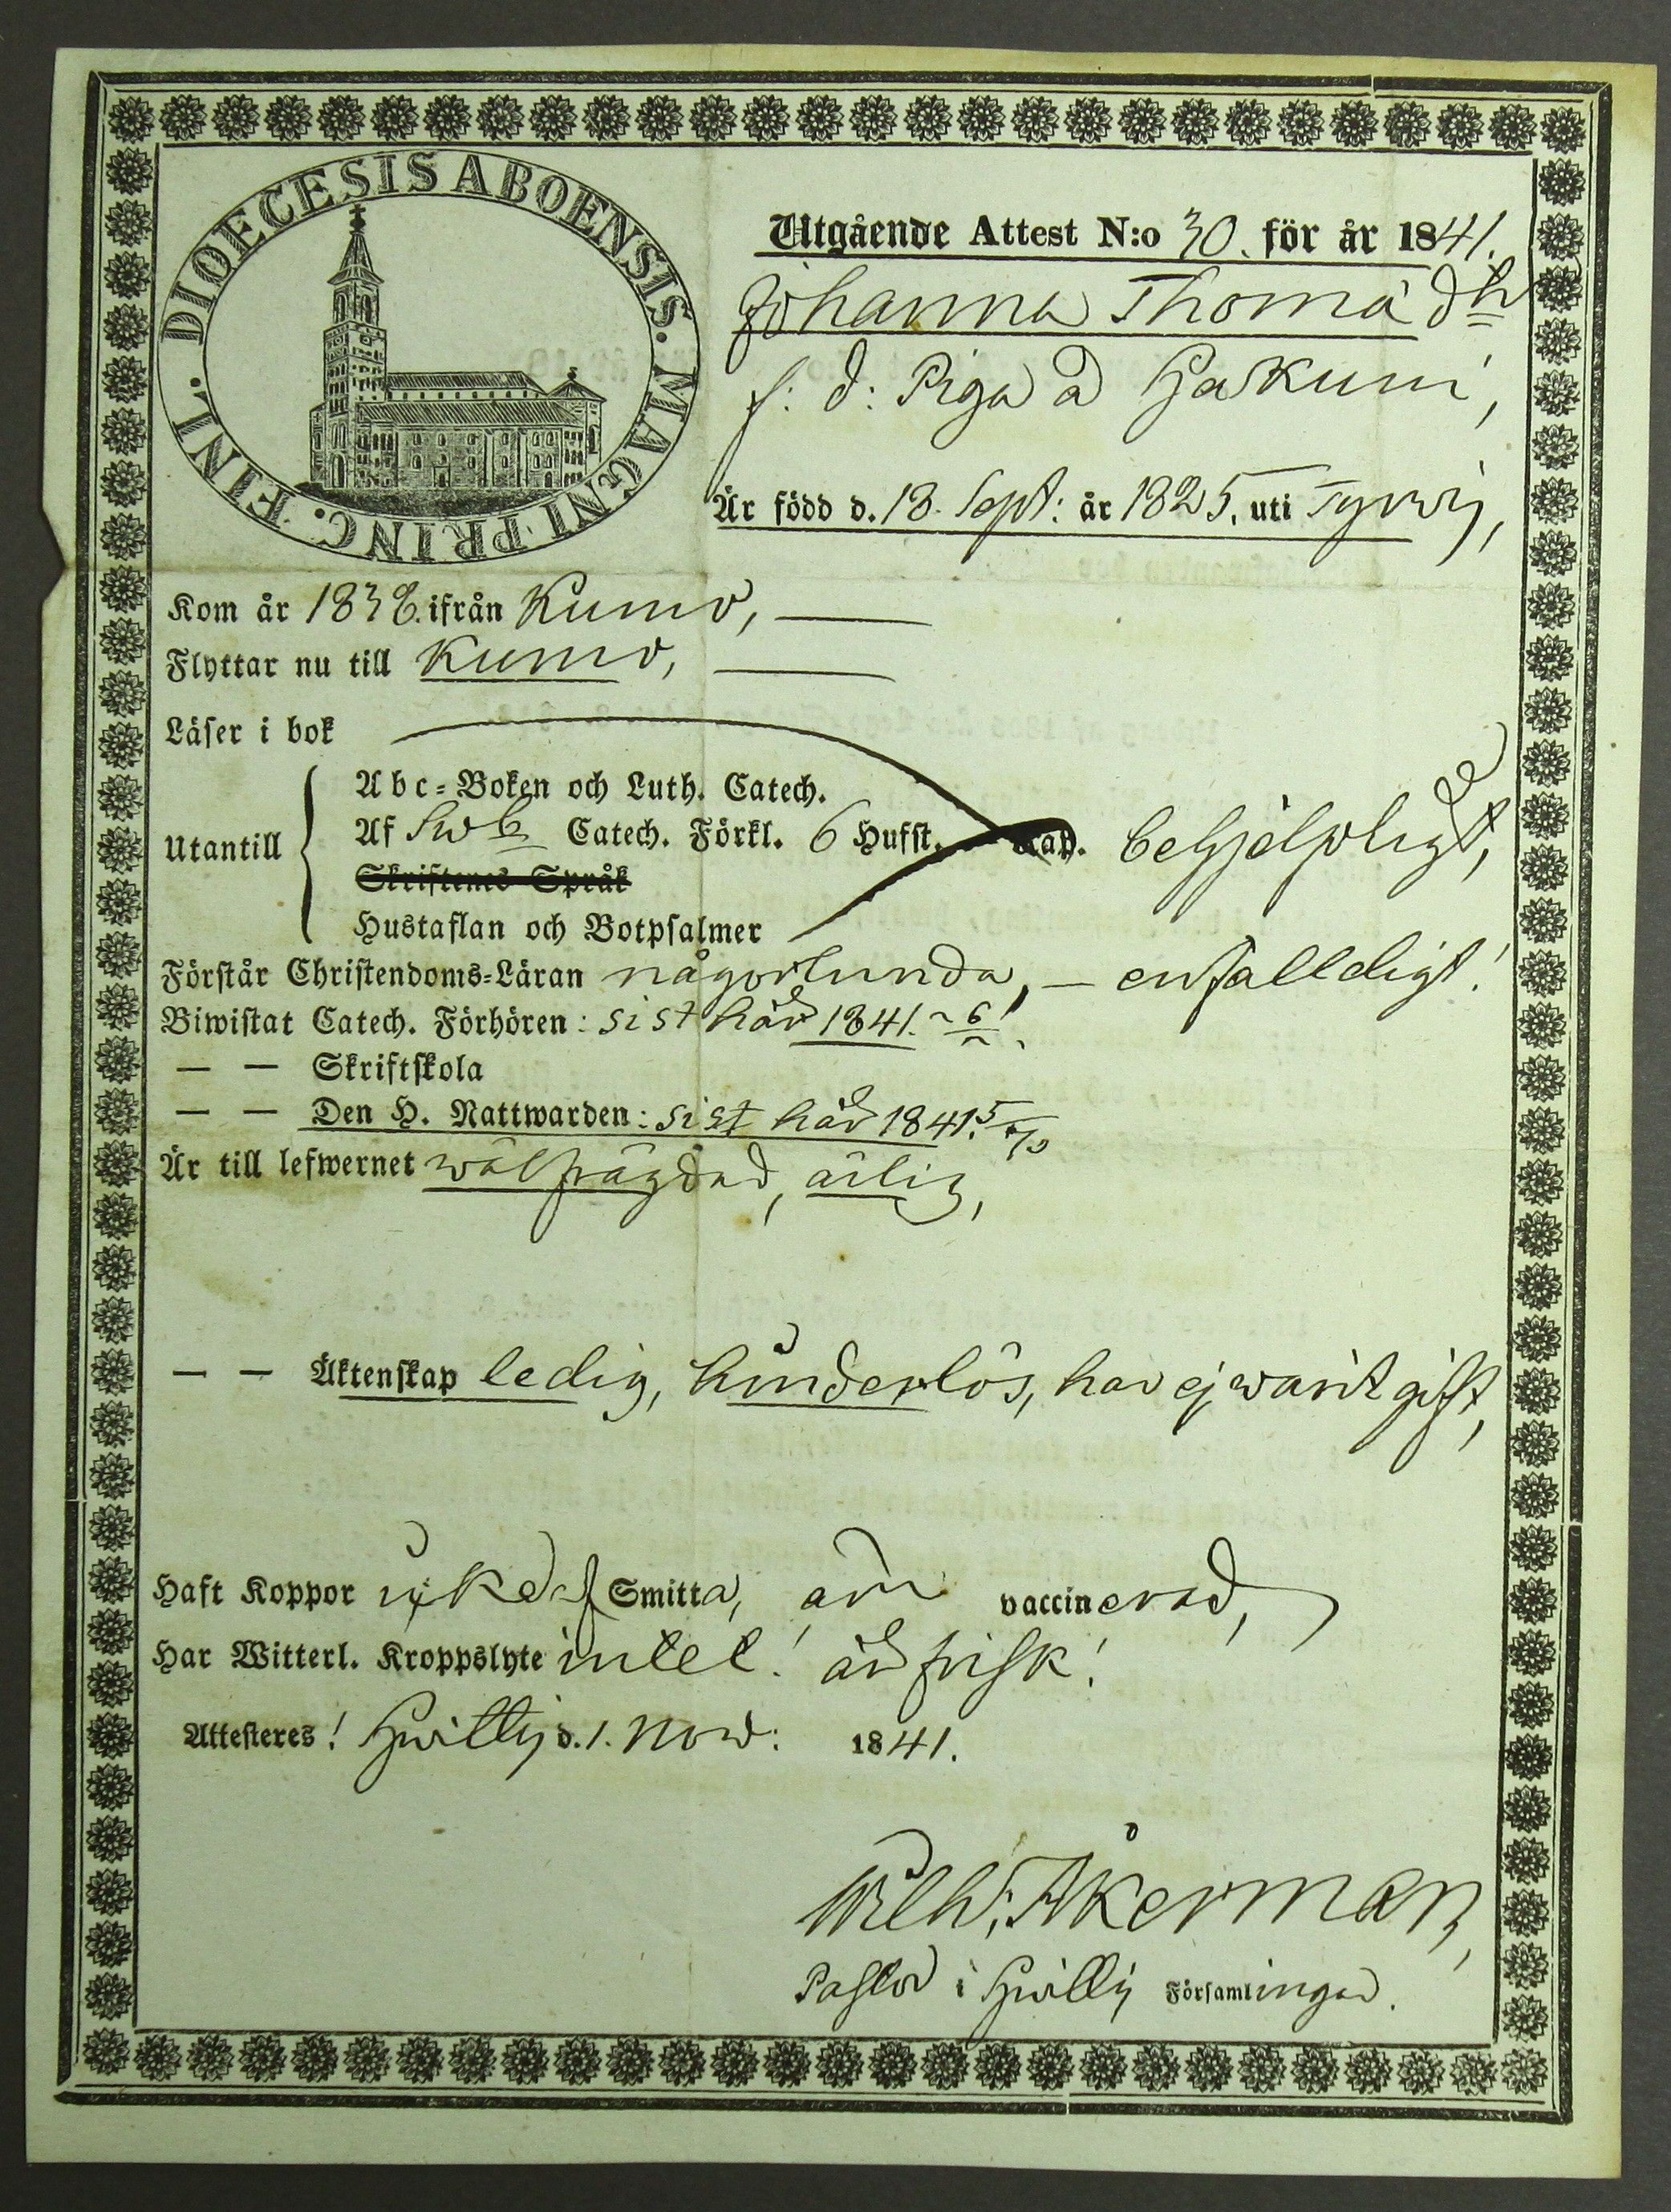 DIOECESIS ABOENSIS. MAGNI PRINC. FINL.
Utgående Attest N:o 30. för år 1841.
Johanna Thomä dtr
f: d: Piga å Hakuni,
Är född d. 18. Sept: år 1825, uti Tyrwis,
Kom år 1838. ifrån Kumo,
Flyttar nu till Kumo,
Läser i bok
Utantill
Abc-Boken och Luth. Catech.
Af Sweb Catech. Förkl. 6 Hufst. Kap. behjelpligt,
Skriftenes Språk
Hustaflan och Botpsalmer
Förstår Christendoms-Läran någorlunda, – enfalldigt!
Biwistat Catech. Förhören: sist här 1841.
— — Skriftskola
— — Den H. Nattwarden: sist här 1841.
Är till lefwernet wälfrägdad, ärlig,
— — Äktenskap ledig, hinderlös, har ej warit gift,
Haft Koppor Smitta, är vaccinerad,
Har Witterl. Kroppslyte intet! är frisk!
Attesteres! Hwittis d. 1. Now: 1841.
Wilh: Åkerman,
Pastor i Hwittis Församlingar.